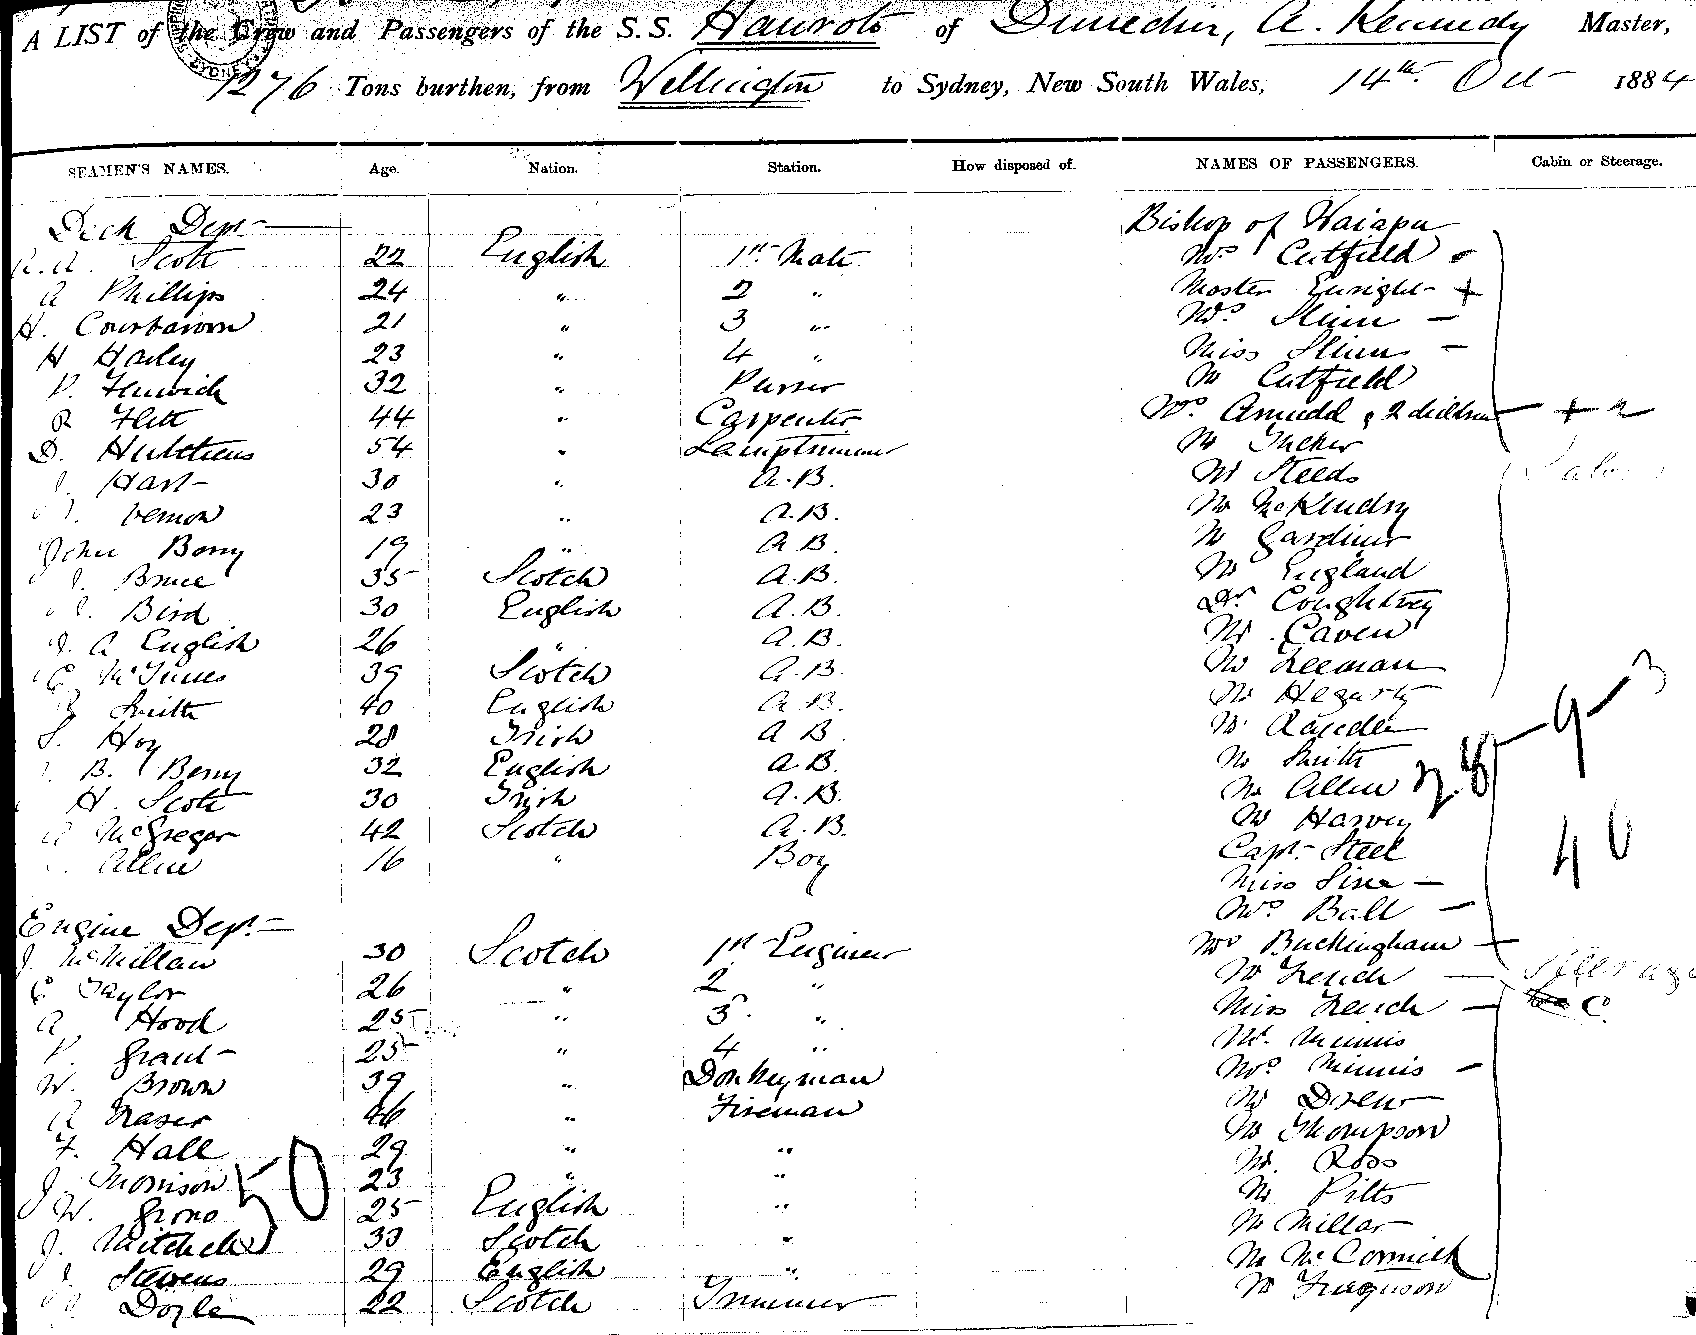 A LIST of the Crew and Passengers of the S.S. Hauroto of Dunedin, A. Kennedy Master,
1276 Tons burthen, from Wellington to Sydney, New South Wales, 14th Oct 1884
SEAMEN'S NAMES. Age. Nation. Station. How disposed of. NAMES OF PASSENGERS. Cabin or Steerage.
Deck Dept Bishop of Waiapu
Scott 22 English 1st Mate Mrs Cutfield
A Phillips 24 " 2 " Master Enright +
H. 21 " 3 " Mrs —
H Harley 23 " 4 " Miss —
P. Fenwick 32 " Purser Mr Cutfield
R Flett 44 " Carpenter Mrs & 2 children — + 2
D. Hutchens 54 " Lamptrimmer Mr Tucker
Hart 30 " A.B. Mr Steeds
Vernon 23 " A.B. Mr McKendry
John Berry 19 " A.B. Mr Gardiner
J. Bruce 35 Scotch A.B. Mr England
Bird 30 English A.B. Dr. Coughtrey
J. A English 26 " A.B. Mr. Caven
McInnes 39 Scotch A.B. Mr Freeman
Smith 40 English A.B. Mr Hegarty
S. Hoy 28 Irish A B. Mr
B. Berry 32 English A.B. Mr Smith
H. Scott 30 Irish A.B. Mr Allen
A McGregor 42 Scotch A.B. Mr Harvey
Allen 16 " Boy Capt. Steel
Miss —
Engine Dept. Mrs Ball —
J. McMillan 30 Scotch 1st Engineer Mrs Buckingham —
C Taylor 26 " 2 " Mr French — Steerage
A Hood 25 " 3 " Miss French — C
P. Grant 25 " 4 " Mr. Minnis
W. Brown 39 " Donkeyman Mrs Minnis —
A Fraser 46 " Fireman Mr Drew
F. Hall 29 " " Mr Thompson
J. Morrison 23 " " Mr. Ross
W. Grono 25 English " Mr Pitts
J. Mitchell 33 Scotch " Mr Millar
Stevens 29 English " Mr McCormick
Doyle 22 Scotch Trimmer Mr Ferguson
50
28 - 9 - 3
40